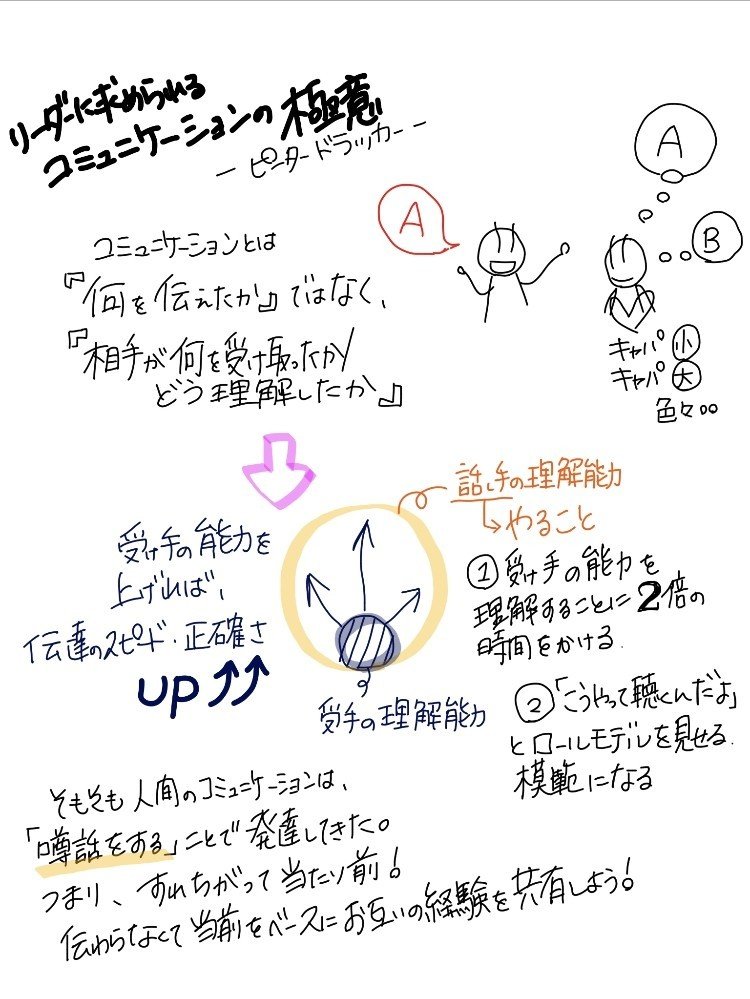 リーダーに求められる
コミュニケーションの極意
ーピータードラッカーー
A
A
B
キャパ小
キャパ大
色々°°
コミュニケーションとは
『何を伝えたか』ではなく、
『相手が何を受け取ったか/
どう理解したか』
話し手の理解能力
↳やること
受け手の能力を
上げれば、
伝達のスピード・正確さ
UP⤴⤴
受手の理解能力
①受け手の能力を
理解することに2倍の
時間をかける.
②「こうやって聴くんだよ」
とロールモデルを見せる.
模範になる
そもそも人間のコミュニケーションは、
「噂話をする」ことで発達してきた。
つまり、すれちがって当たり前!
伝わらなくて当前をベースにお互いの経験を共有しよう!